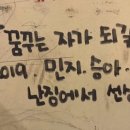 꿈꾸는 자가 되
019. 민지. 승아.
난징에서 선